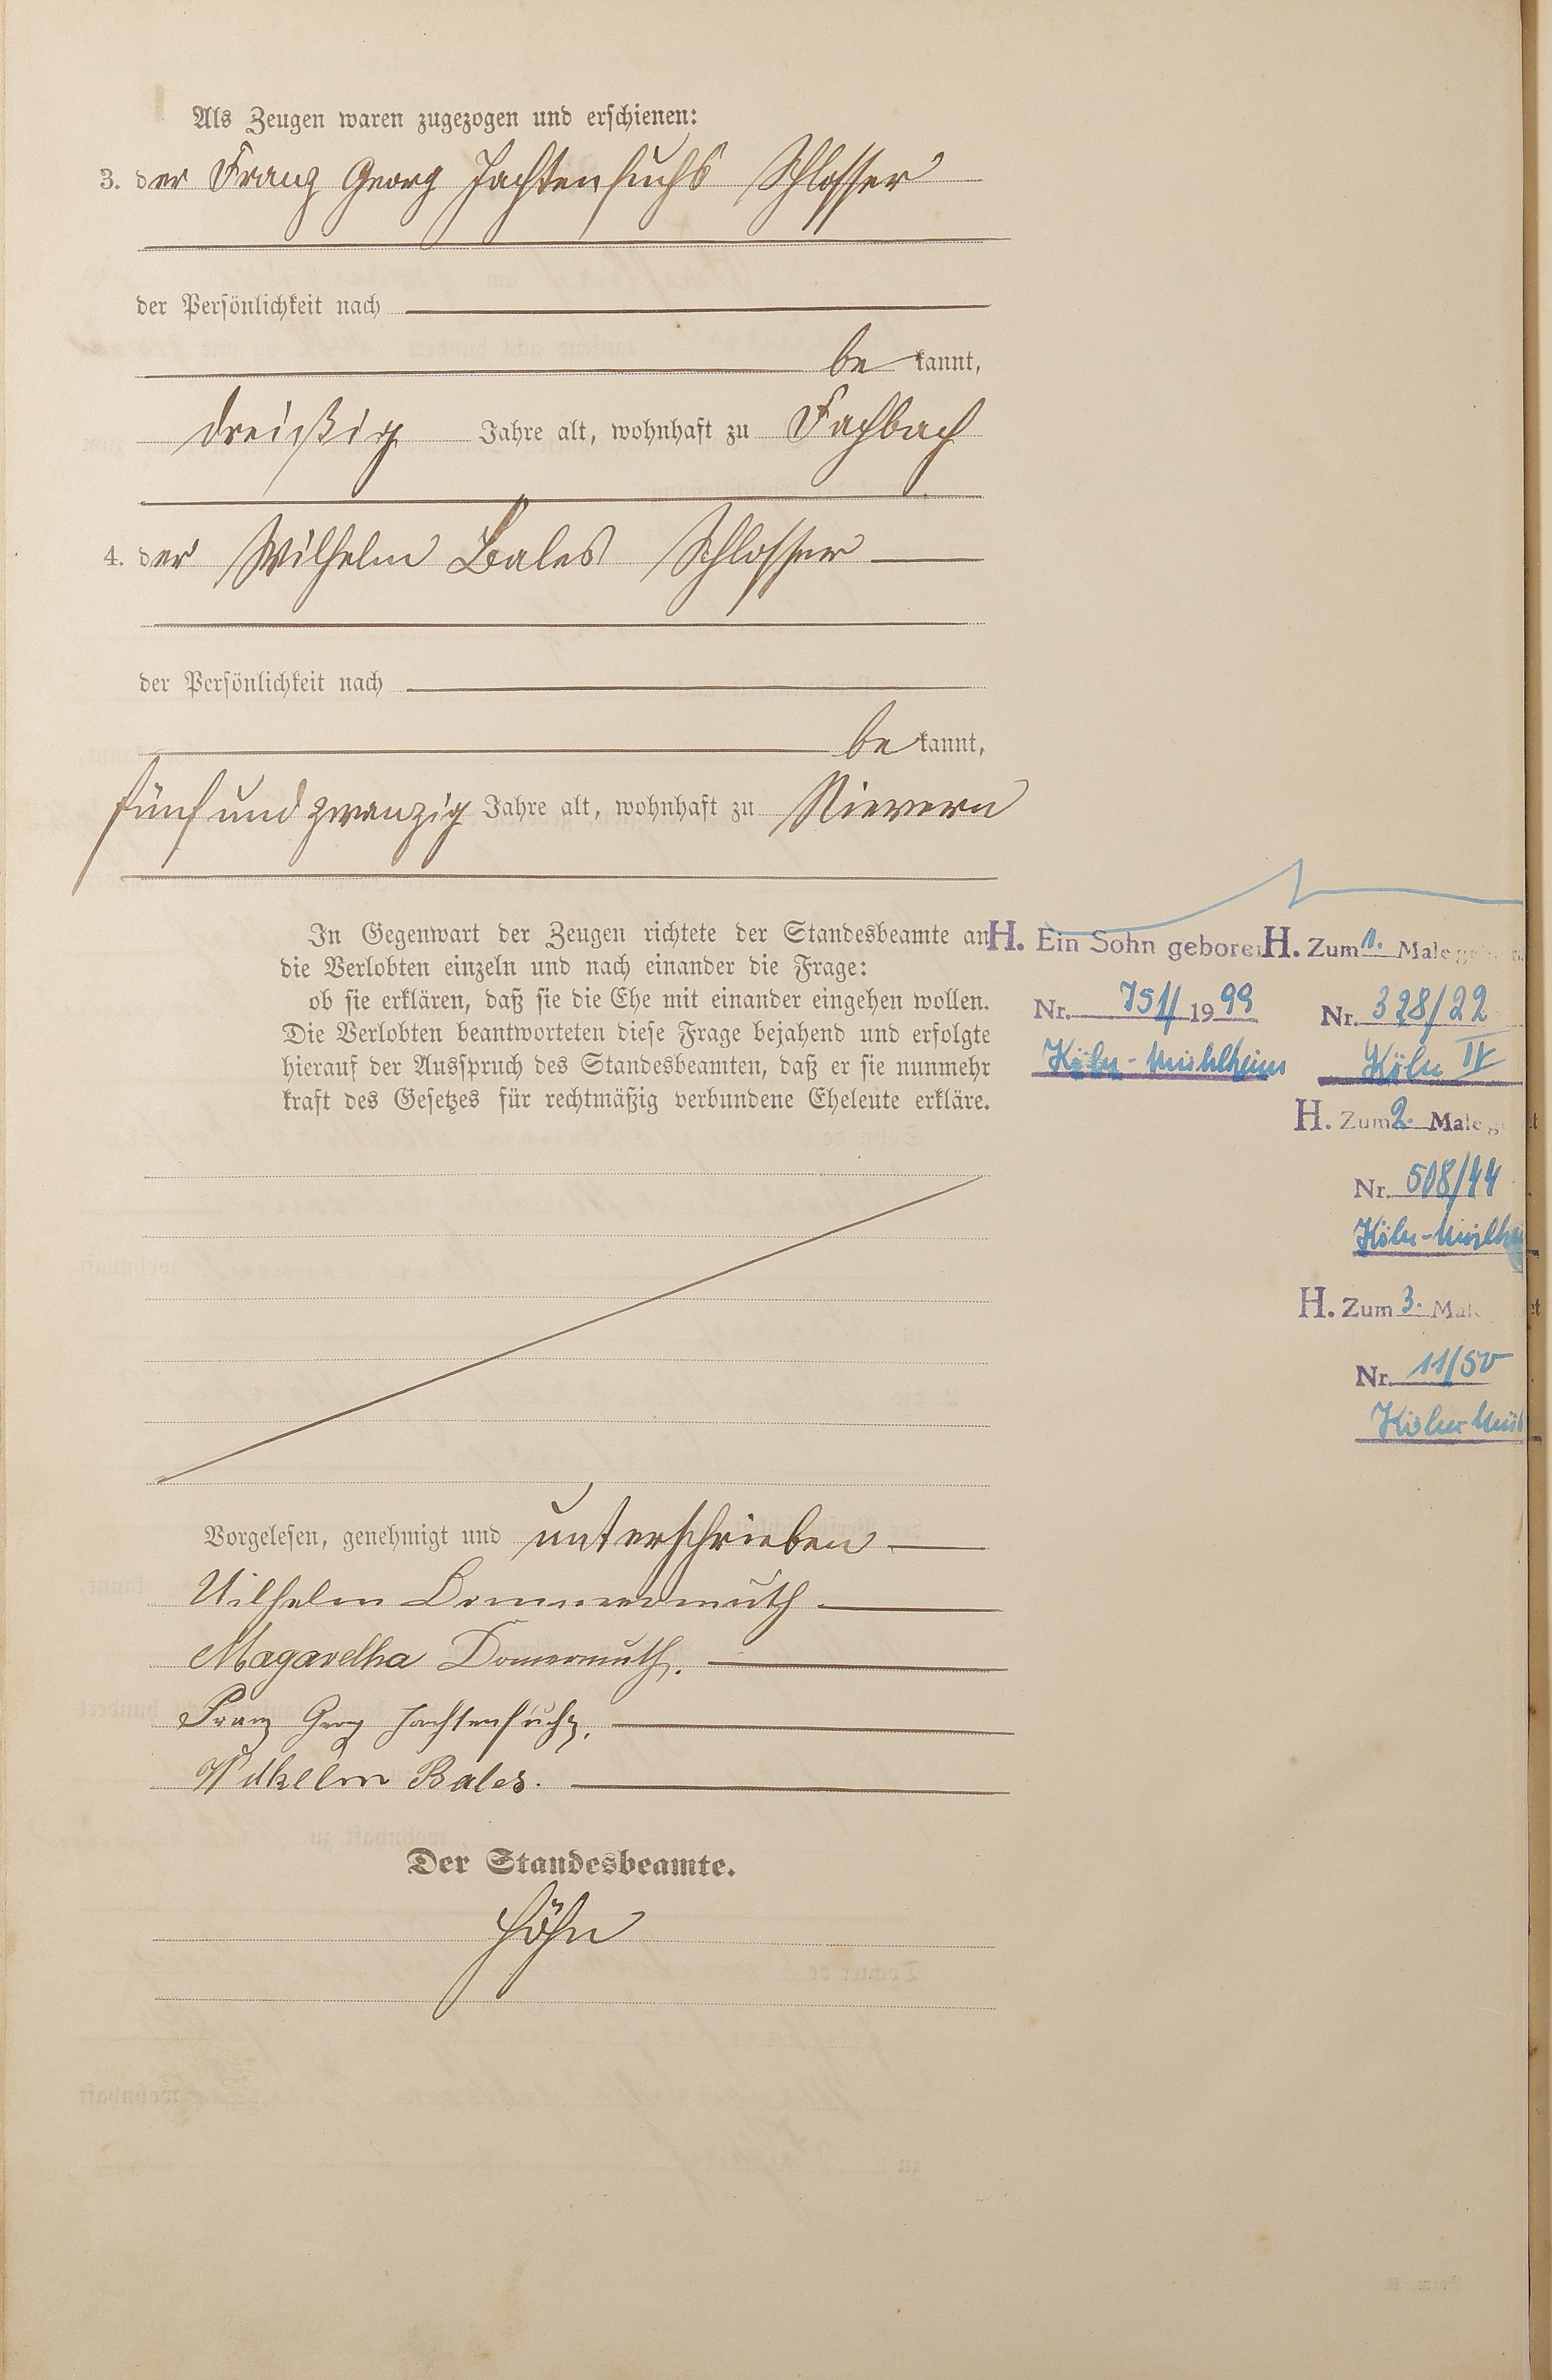 Als Zeugen waren zugezogen und erschienen:
3. der Franz Georg Jachtenfuchs Schlosser
der Persönlichkeit nach
be kannt,
dreißig Jahre alt, wohnhaft zu Fachbach
4. der Wilhelm Bales Schlosser
der Persönlichkeit nach
be kannt,
fünfundzwanzig Jahre alt, wohnhaft zu Nievern
In Gegenwart der Zeugen richtete der Standesbeamte an
die Verlobten einzeln und nach einander die Frage:
ob sie erklären, daß sie die Ehe mit einander eingehen wollen.
Die Verlobten beantworteten diese Frage bejahend und erfolgte
hierauf der Ausspruch des Standesbeamten, daß er sie nunmehr
kraft des Gesetzes für rechtmäßig verbundene Eheleute erkläre.
H. Ein Sohn geboren
Nr. 751/1999
Köln-Mühlheim
H. Zum 1. Male
Nr. 328/22
Köln IV
H. Zum 2. Male
Nr. 508/44
Köln-Mülh
H. Zum 3. Male
Nr. 11/50
Köln Mül
Vorgelesen, genehmigt und unterschrieben
Wilhelm Dommermuth
Magaretha Domermuth.
Franz Georg Jachtenfuchs.
Wilhelm Bales.
Der Standesbeamte.
Höhn